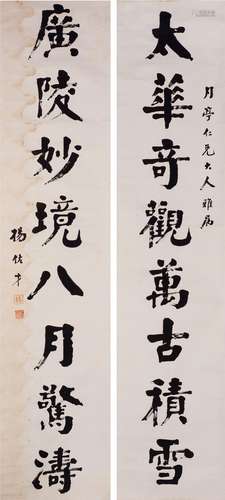 太華奇觀萬古積雪
月亭仁兄大人雅屬
廣陵妙境八月驚濤
楊佐才